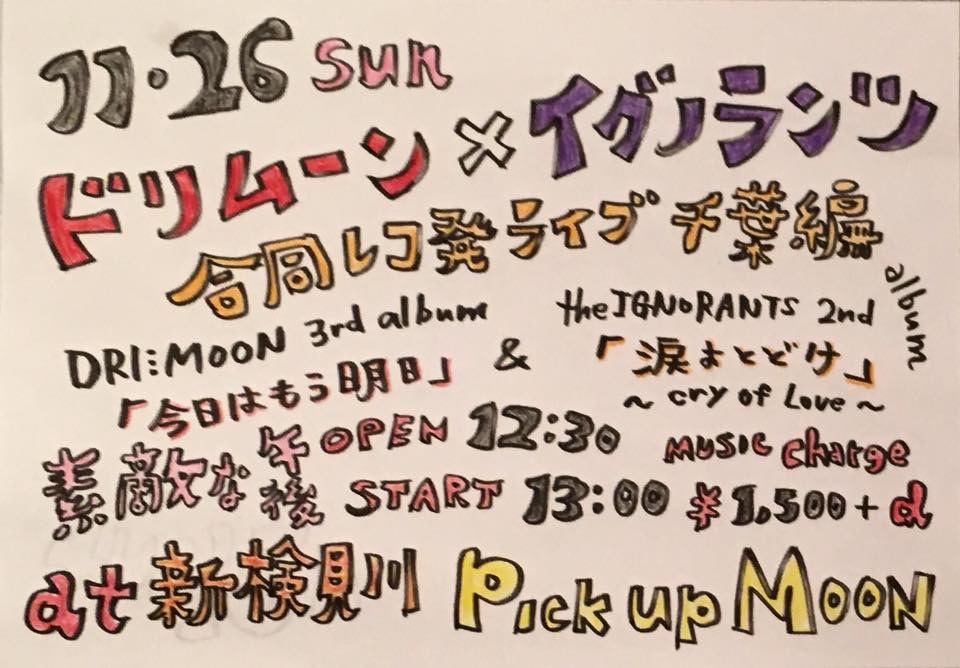 11・26 sun
ドリムーン×イグノランツ
合同レコ発ライブ千葉編
DRI⋮MOON 3rd album
「今日はもう明日」
&
the IGNORANTS 2nd album
「涙よとどけ」
～cry of Love～
素敵な午後
OPEN 12:30
START 13:00
MUSIC charge
¥1,500+d
at 新検見川 Pick up MOON